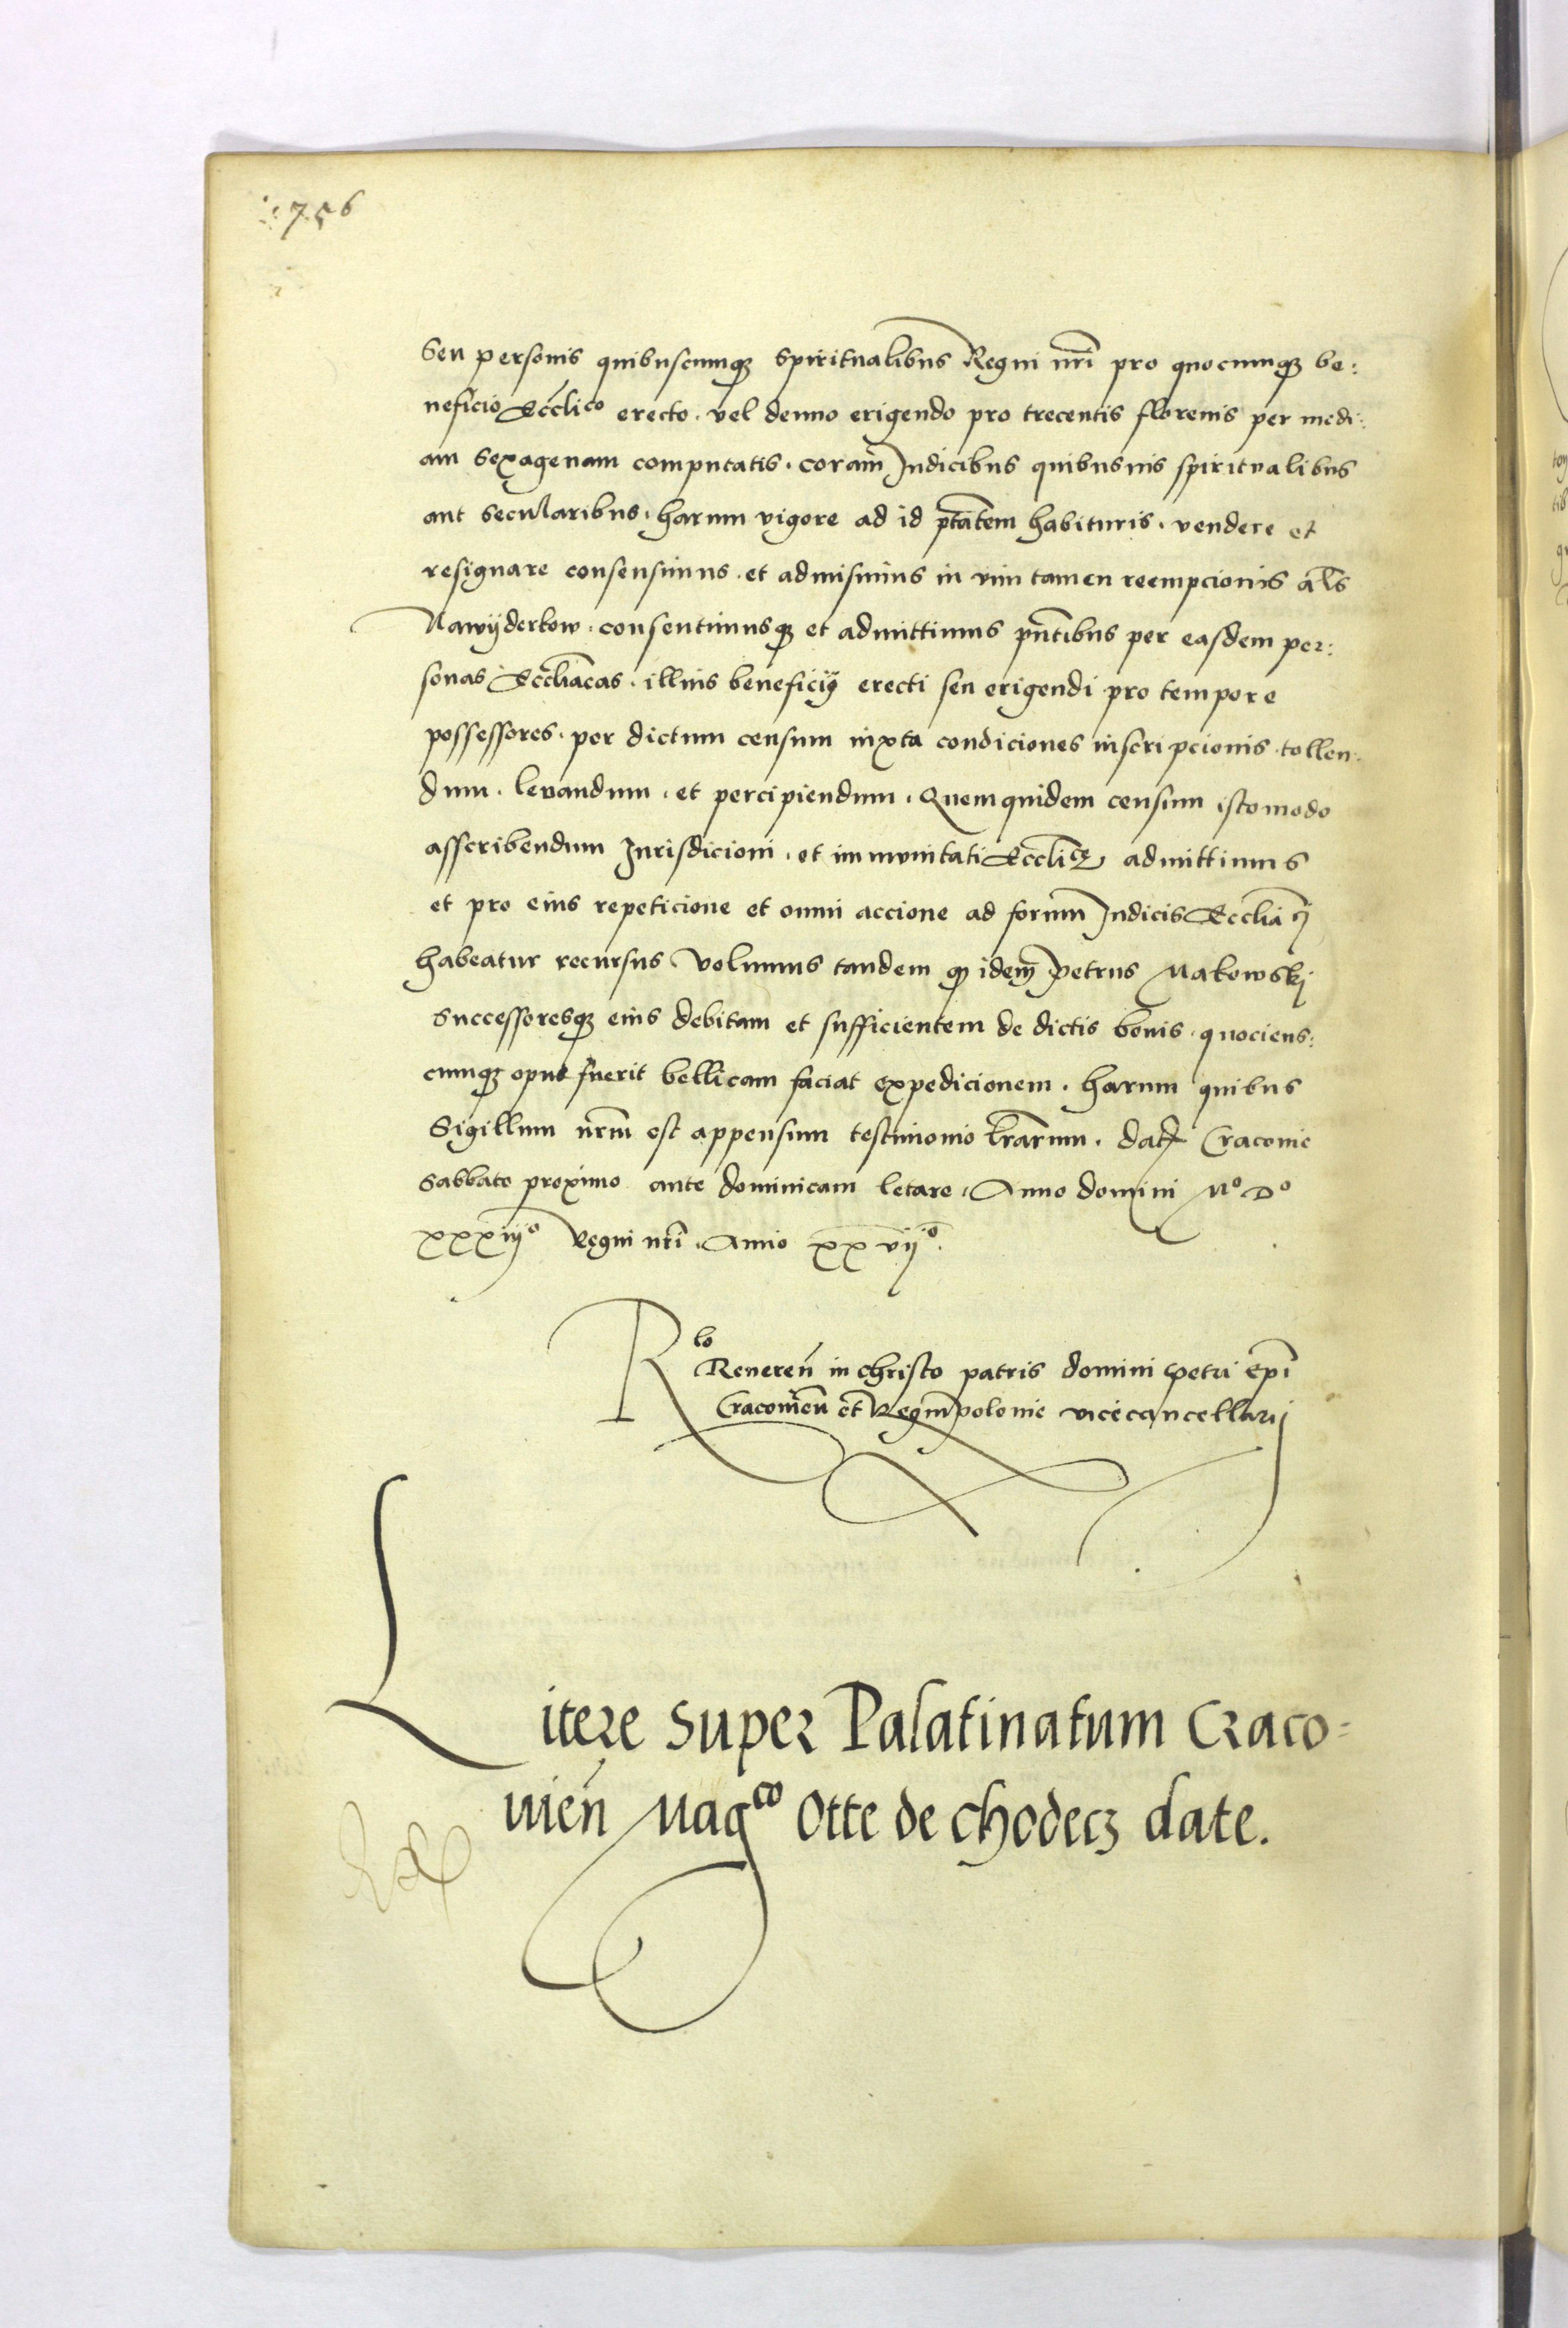 756
Seu personis quibuscumqȝ Spiritualibus Regni nr̃i pro quocumqȝ be:
neficio Eccl̃ico erecto. vel denuo erigendo pro trecentis florenis per medi:
am Sexagenam computatis. coram Judicibus quibusuis spiritualibus
aut Secularibus. harum vigore ad id pt̃atem habituris. vendere et
resignare consensimus. et admisimus in vim tamen reempcionis al̃s
Nawyderkow. consentimusqȝ et admittimus pñtibus per easdem per:
sonas Eccl̃iacas. illius beneficij erecti seu erigendi pro tempore
possessores. per dictum censum iuxta condiciones inscripcionis tollen:
dum. leuandum. et percipiendum. Quemquidem censum istomodo
asscribendum Jurisdicioni. et immunitati Eccl̃ice admittimus
et pro eius repeticione et omni accione ad forum Judicis Eccl̃iaci
habeatur recursus Volumus tandem qȝ idem Petrus Makowskj
Successoresqȝ eius debitam et sufficientem de dictis bonis. quociens:
cumqȝ opus fuerit bellicam faciat expedicionem. harum quibus
Sigillum nr̃m est appensum testimonio lr̃arum. dat̃ Cracouie
Sabbato proximo ante dominicam letare. Anno domini Mº Dº
xxxiijº Regni nr̃i Anno xxvijº.
Rlo
Reueren̄ in christo patris domini Petri Ep̃i
Cracouien̄ et Regni Polonie vicecancellarij
Litere super Palatinatum Craco=
uien̄ Magco Otte de Chodecz date.